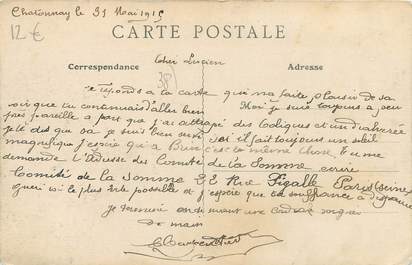 Chatonnay le 31 Mai 1915
12 €
CARTE POSTALE
Correspondance
Adresse
38
Cher Lucien
je réponds à ta carte qui ma faite plaisir de sa
voir que tu continuais d'aller bien Moi je suis toujours a peu
près pareille a part que j'ai attrapé des Coliques et un diahrrée
je te des que sa je suis bien ici il fait toujours un soleil
magnifique j'espère qu'a c'est la même chose Tu me
demande L'adresse du Comité de La Somme ecrire
Comité de la Somme 22 Rue Pigalle Paris (seine
Queri toi le plus vite possible et j'espère que ta souffrance a disparue
Je termine en te une cordiale poignée
de main